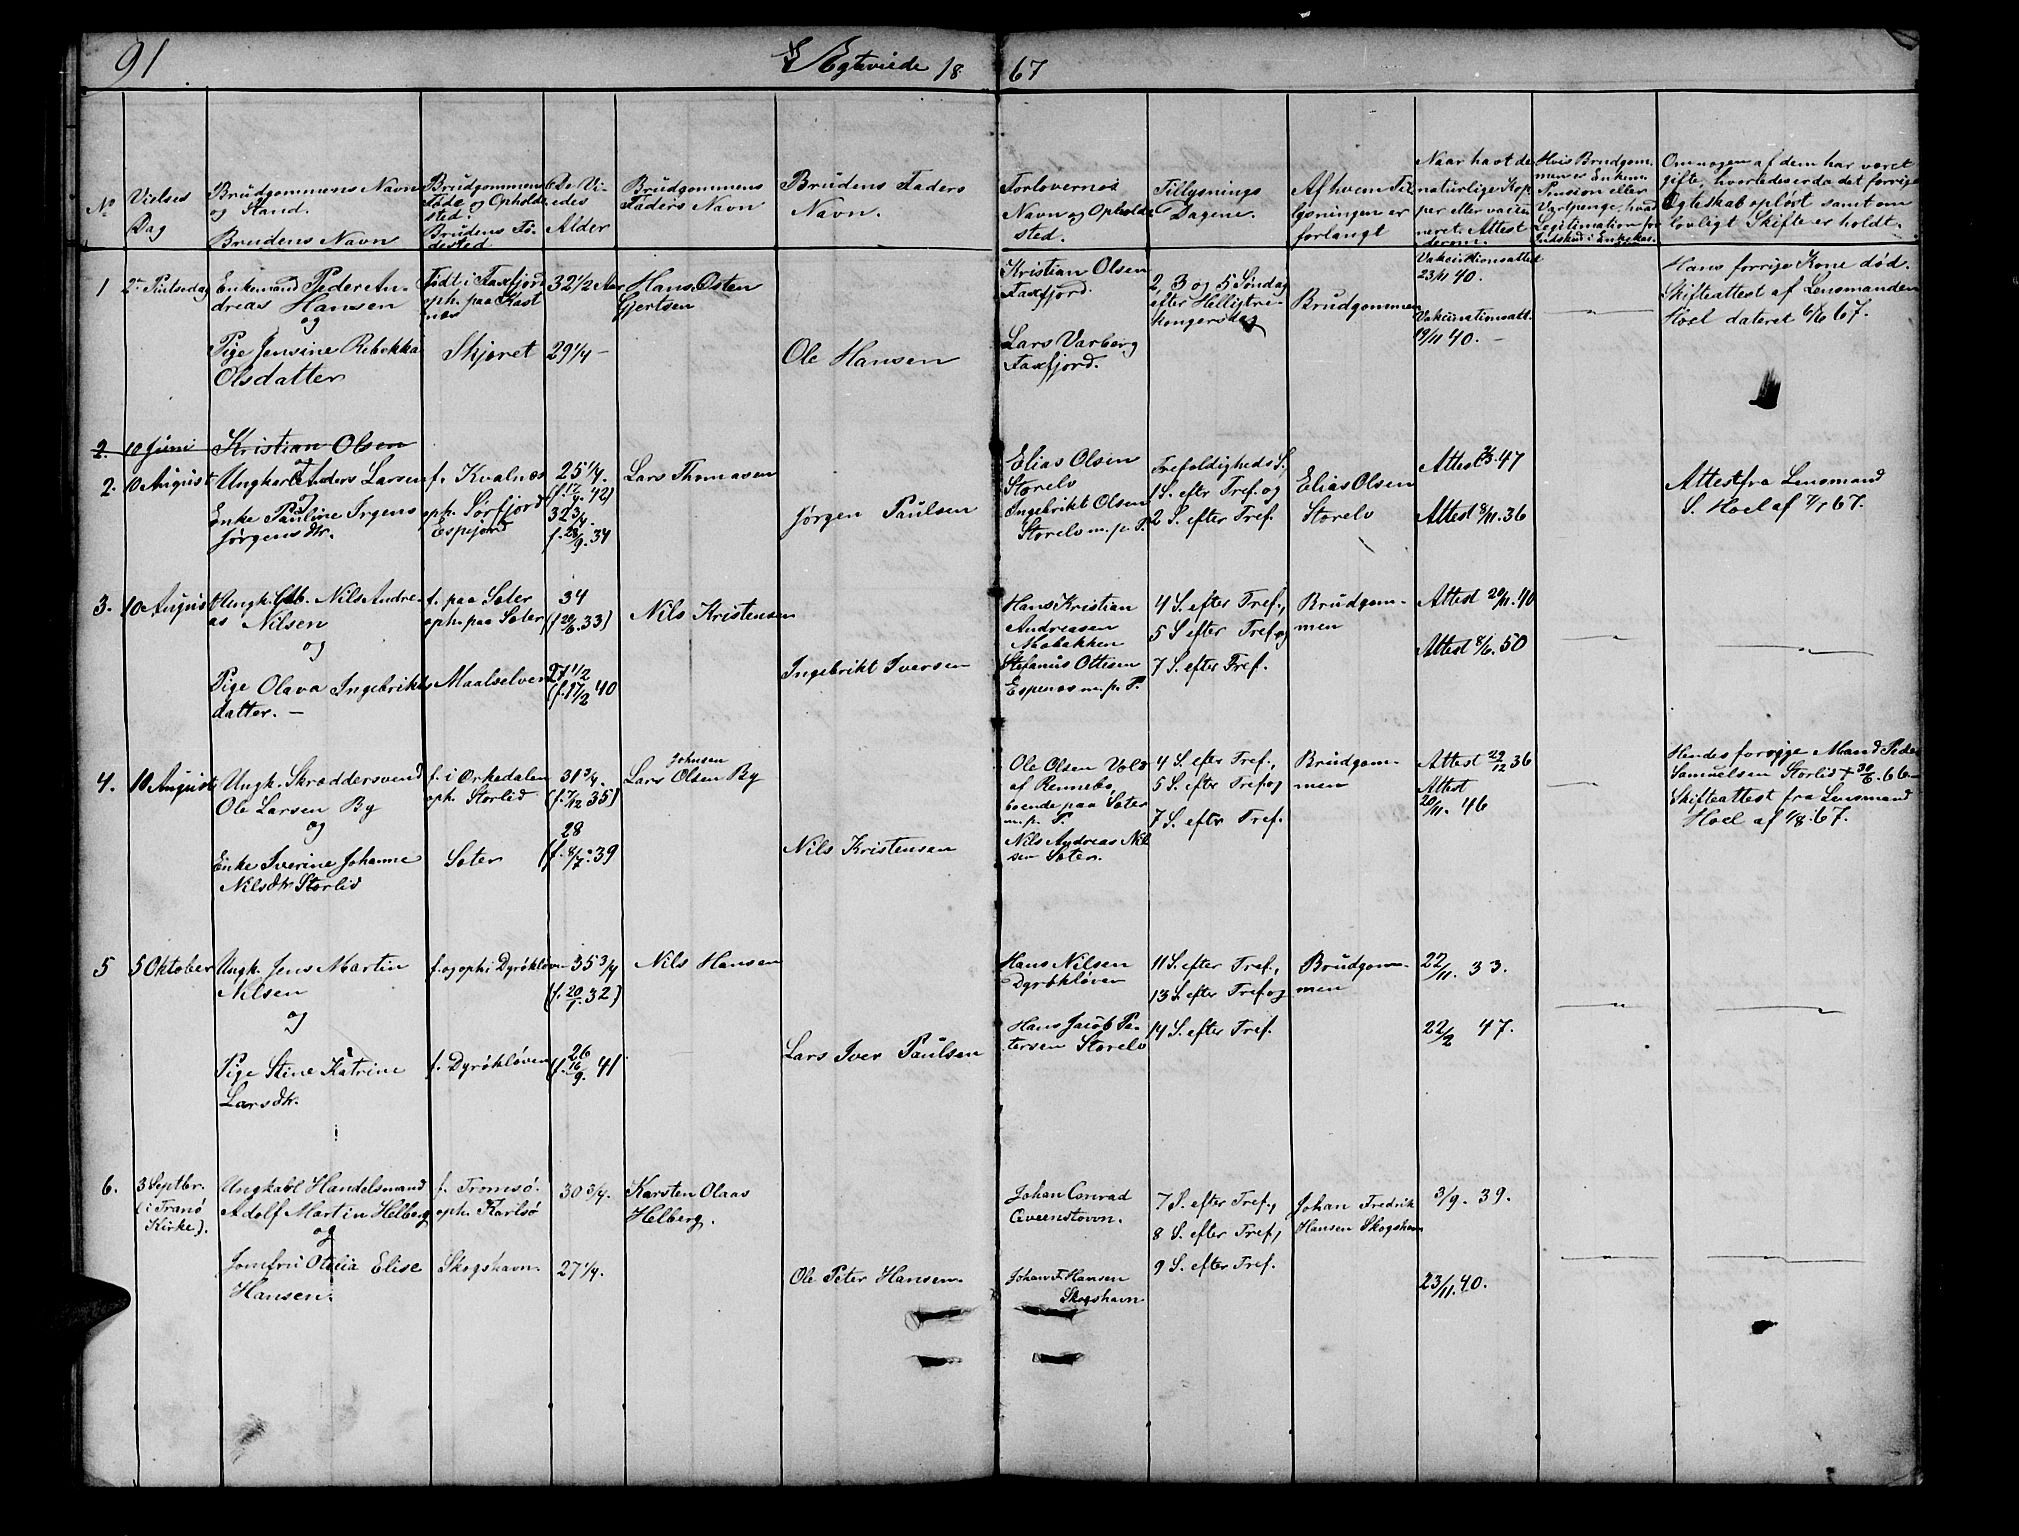 91
Ægteviede 18 67
No
Vielses
Dag
Brudgommens Navn
og Stand.
Brudens Navn
Brudgommens
Føde og Opholds
sted.
Brudens Fø-
dested
De Vi-
edes
Alder
Brudgommens
Faders Navn
Brudens Faders
Navn.
Forlovernes
Navn og Opholds
sted.
Tillysnings
Dagene.
Af hvem Til
lysningen er
forlangt
Naar havt de
naturlige Kop
per eller vacci
neret. Attest
derom.
Hvis Brudgom-
men er Enkem.
Pension eller
Vartpenge, hvad
Legitimation for
Indskud i Enkekas.
Om nogen af dem har været
gifte, hvorledes er da det forrige
Ægteskab opløst samt om
lovligt Skifte er holdt.
1
2den Pintsedag
Enkemand Peder An-
dreas Hansen
og
Pige Jensine Rebekka
Olsdatter
Født i Taxfjord
oph. paa Kast
næs
Skjøret
32 1/2 Aar
29 1/4 —
Hans Østen
Gjertsen
Ole Hansen
Kristian Olsen
Taxfjord.
Lars Varberg
Taxfjord.
2, 3 og 5 Søndag
efter Helligtre-
kongersdag
Brudgommen
Vakcinationsattest
23/11 40.
Vakcinationsatt.
19/11 40. —
Hans forrige Kone død.
Skifteattest af Lensmanden
Hoel dateret 6/6 67.
2. 10 Juni Kristian Olsen
2. 10 August
Ungkarl Anders Larsen
og
Enke Pauline Irgens
Jørgensdtr.
f. Kvalnæs
oph. Sørfjord
Espejord
25 1/4.
(f. 17/4. 42)
32 3/4.
f. 28/9. 34
Lars Thomasen
Jørgen Paulsen
Elias Olsen
Storelv
Ingebrikt Olsen
Storelv m. p. P.
Trefoldigheds S.
1 S. efter Tref. og
2 S. efter Tref.
Elias Olsen
Storelv
Attest 2/3. 47
Attest 8/11. 36
Attest fra Lensmand
S. Hoel af 4/1 67.
3. 10 August
Ungk. Gbb. Nils Andre-
as Nilsen
og
Pige Olava Ingebrikts
datter. —
f. paa Sæter
oph. paa Sæter
Maalselven
34
(f 20/6. 33)
27 1/2
(f. 17/2 40
Nils Kristensen
Ingebrikt Iversen
Hans Kristian
Andreasen
Mobakken
Stefanus Ottesen
Espenæs m. p. P.
4 S. efter Tref.,
5 S efter Tref. og
7 S. efter Tref.
Brudgom-
men
Attest 20/11. 40
Attest 8/6. 50
4. 10 August
Ungk. Skræddersvend
Ole Larsen By
og
Enke Iverine Johanne
Nilsdtr Storlid
f. i Orkedalen
oph. Storlid
Sæter
31 3/4.
(f. 7/12 35)
28
(f. 8/7. 39
Johnsen
Lars Olsen By
Nils Kristensen
Ole Olsen Vold
af Rennebo,
boende paa Sæter
m. p. P.
Nils Andreas Nil
sen Sæter.
4 S. efter Tref.,
5 S. efter Tref. og
7 S. efter Tref.
Brudgom-
men
Attest 29/12 36
Attest
20/11. 46
Hendes forrige Mand Peder
Samuelsen Storlid + 30/6. 66
Skifteattest fra Lensmand
Hoel af 1/8. 67.
5 5 Oktober
Ungk. Jens Martin
Nilsen
og
Pige Stine Katrine
Larsdtr.
f. og oph i Dyrökløven
f. Dyrökløven
35 3/4
(f. 20/1. 32)
26
(f. 16/9. 41
Nils Hansen
Lars Iver Paulsen
Hans Nilsen
Dyrökløven
Hans Jacob Pe-
tersen Storelv
11 S. efter Tref.,
13 S. efter Tref. og
14 S. efter Tref.
Brudgom-
men
22/11. 33.
22/2 47.
6.
3 Septbr.
(i Tranö
Kirke).
Ungkarl Handelsmand
Adolf Martin Helberg
og
Jomfru Otelia Elise
Hansen.
f. Tromsø.
oph. Karlsø
Skogshavn.
30 3/4.
27 1/4.
Karsten Olaas
Helberg.
Ole Peter Hansen.
Johan Conrad
Qveenstovn.
Johan F. Hansen
Skogshavn
7 S. efter Tref.,
8 S. efter Tref.,
9 S. efter Tref.
Johan Fredrik
Hansen Skogshavn
3/9. 39.
23/11. 40.